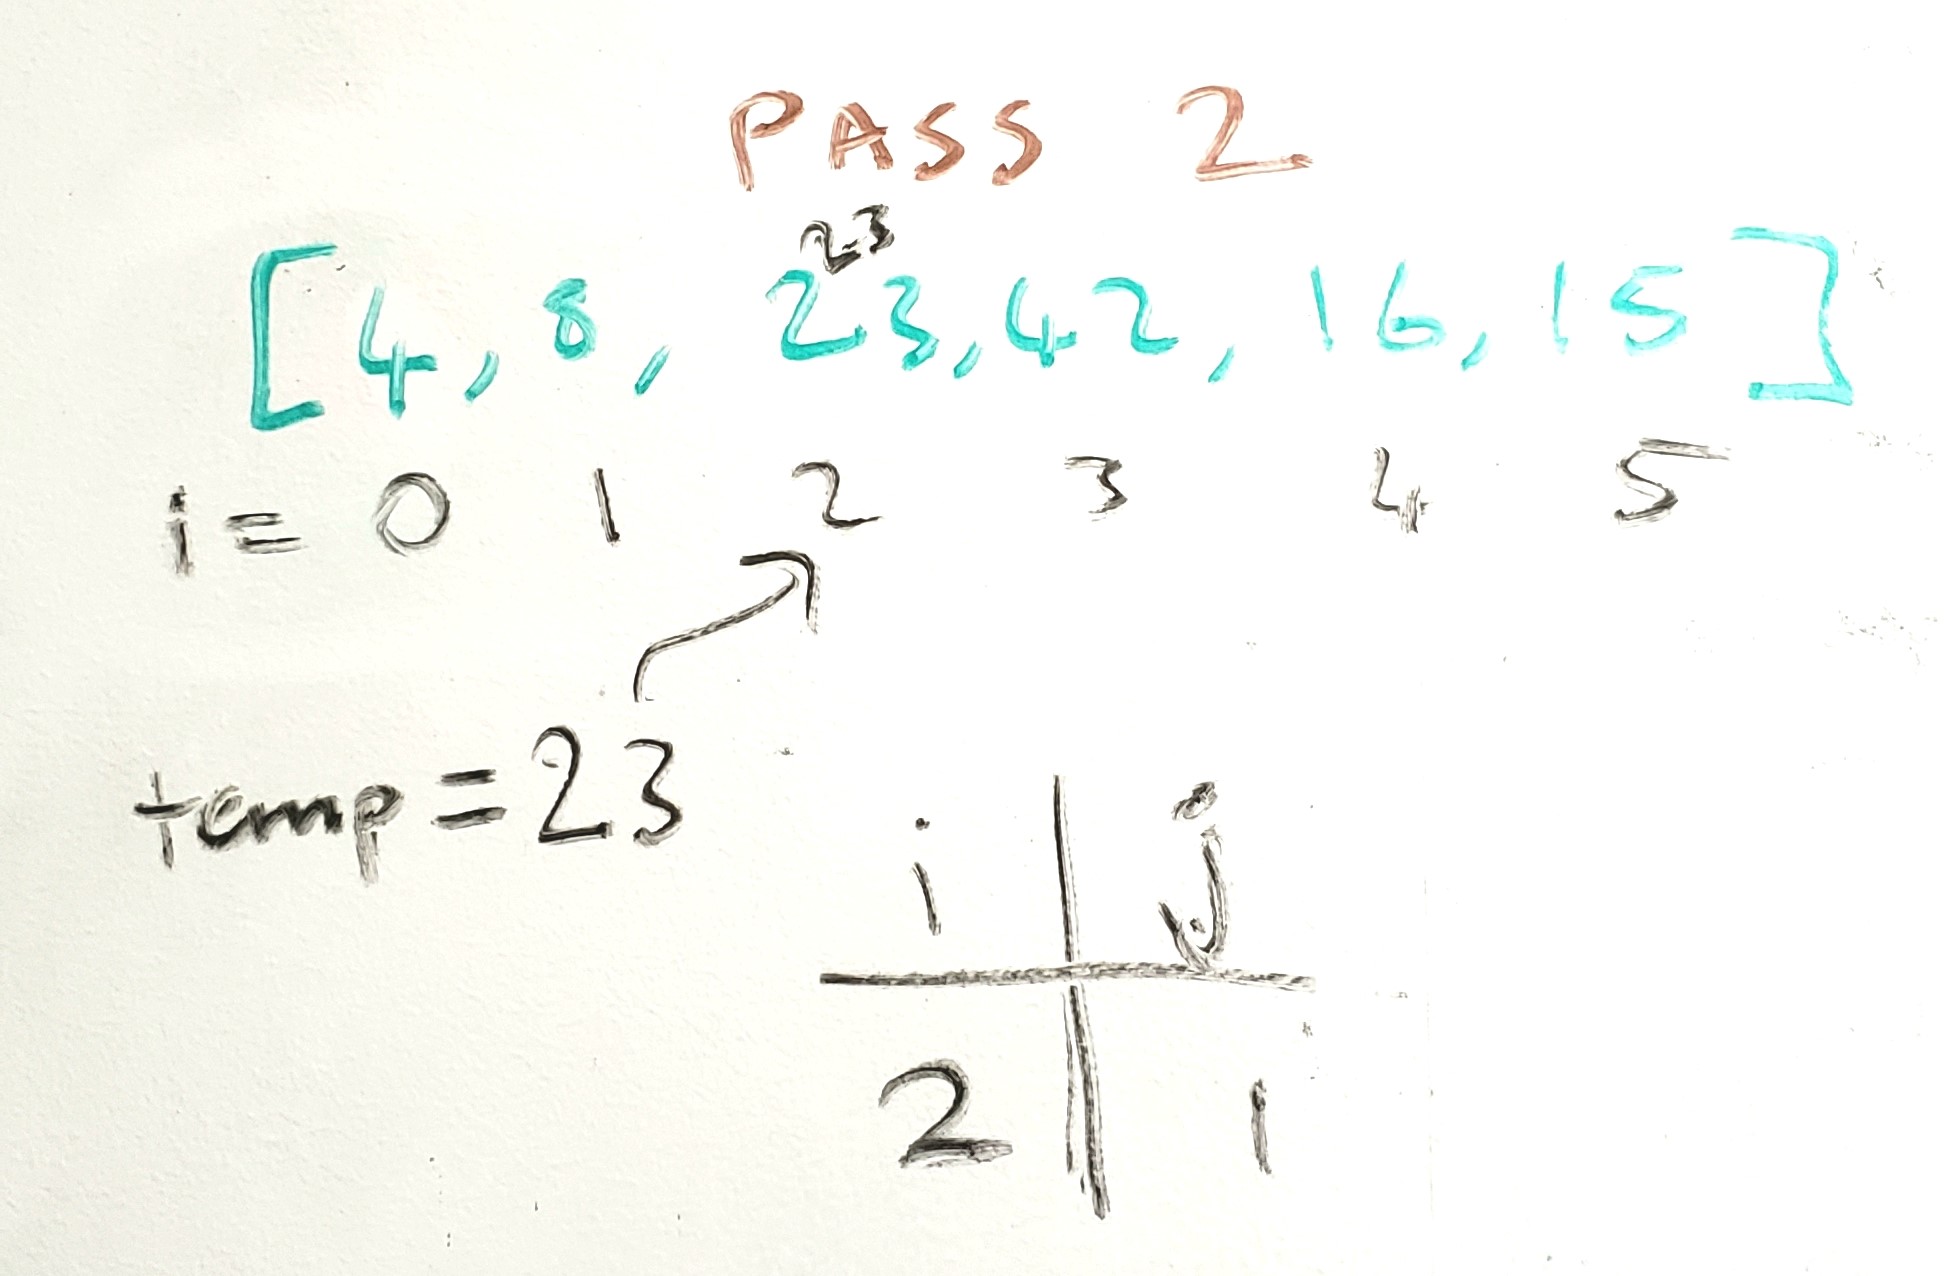 PASS 2
23
[4, 8, 23, 42, 16, 15]
i = 0 1 2 3 4 5
temp = 23
i j
2 1